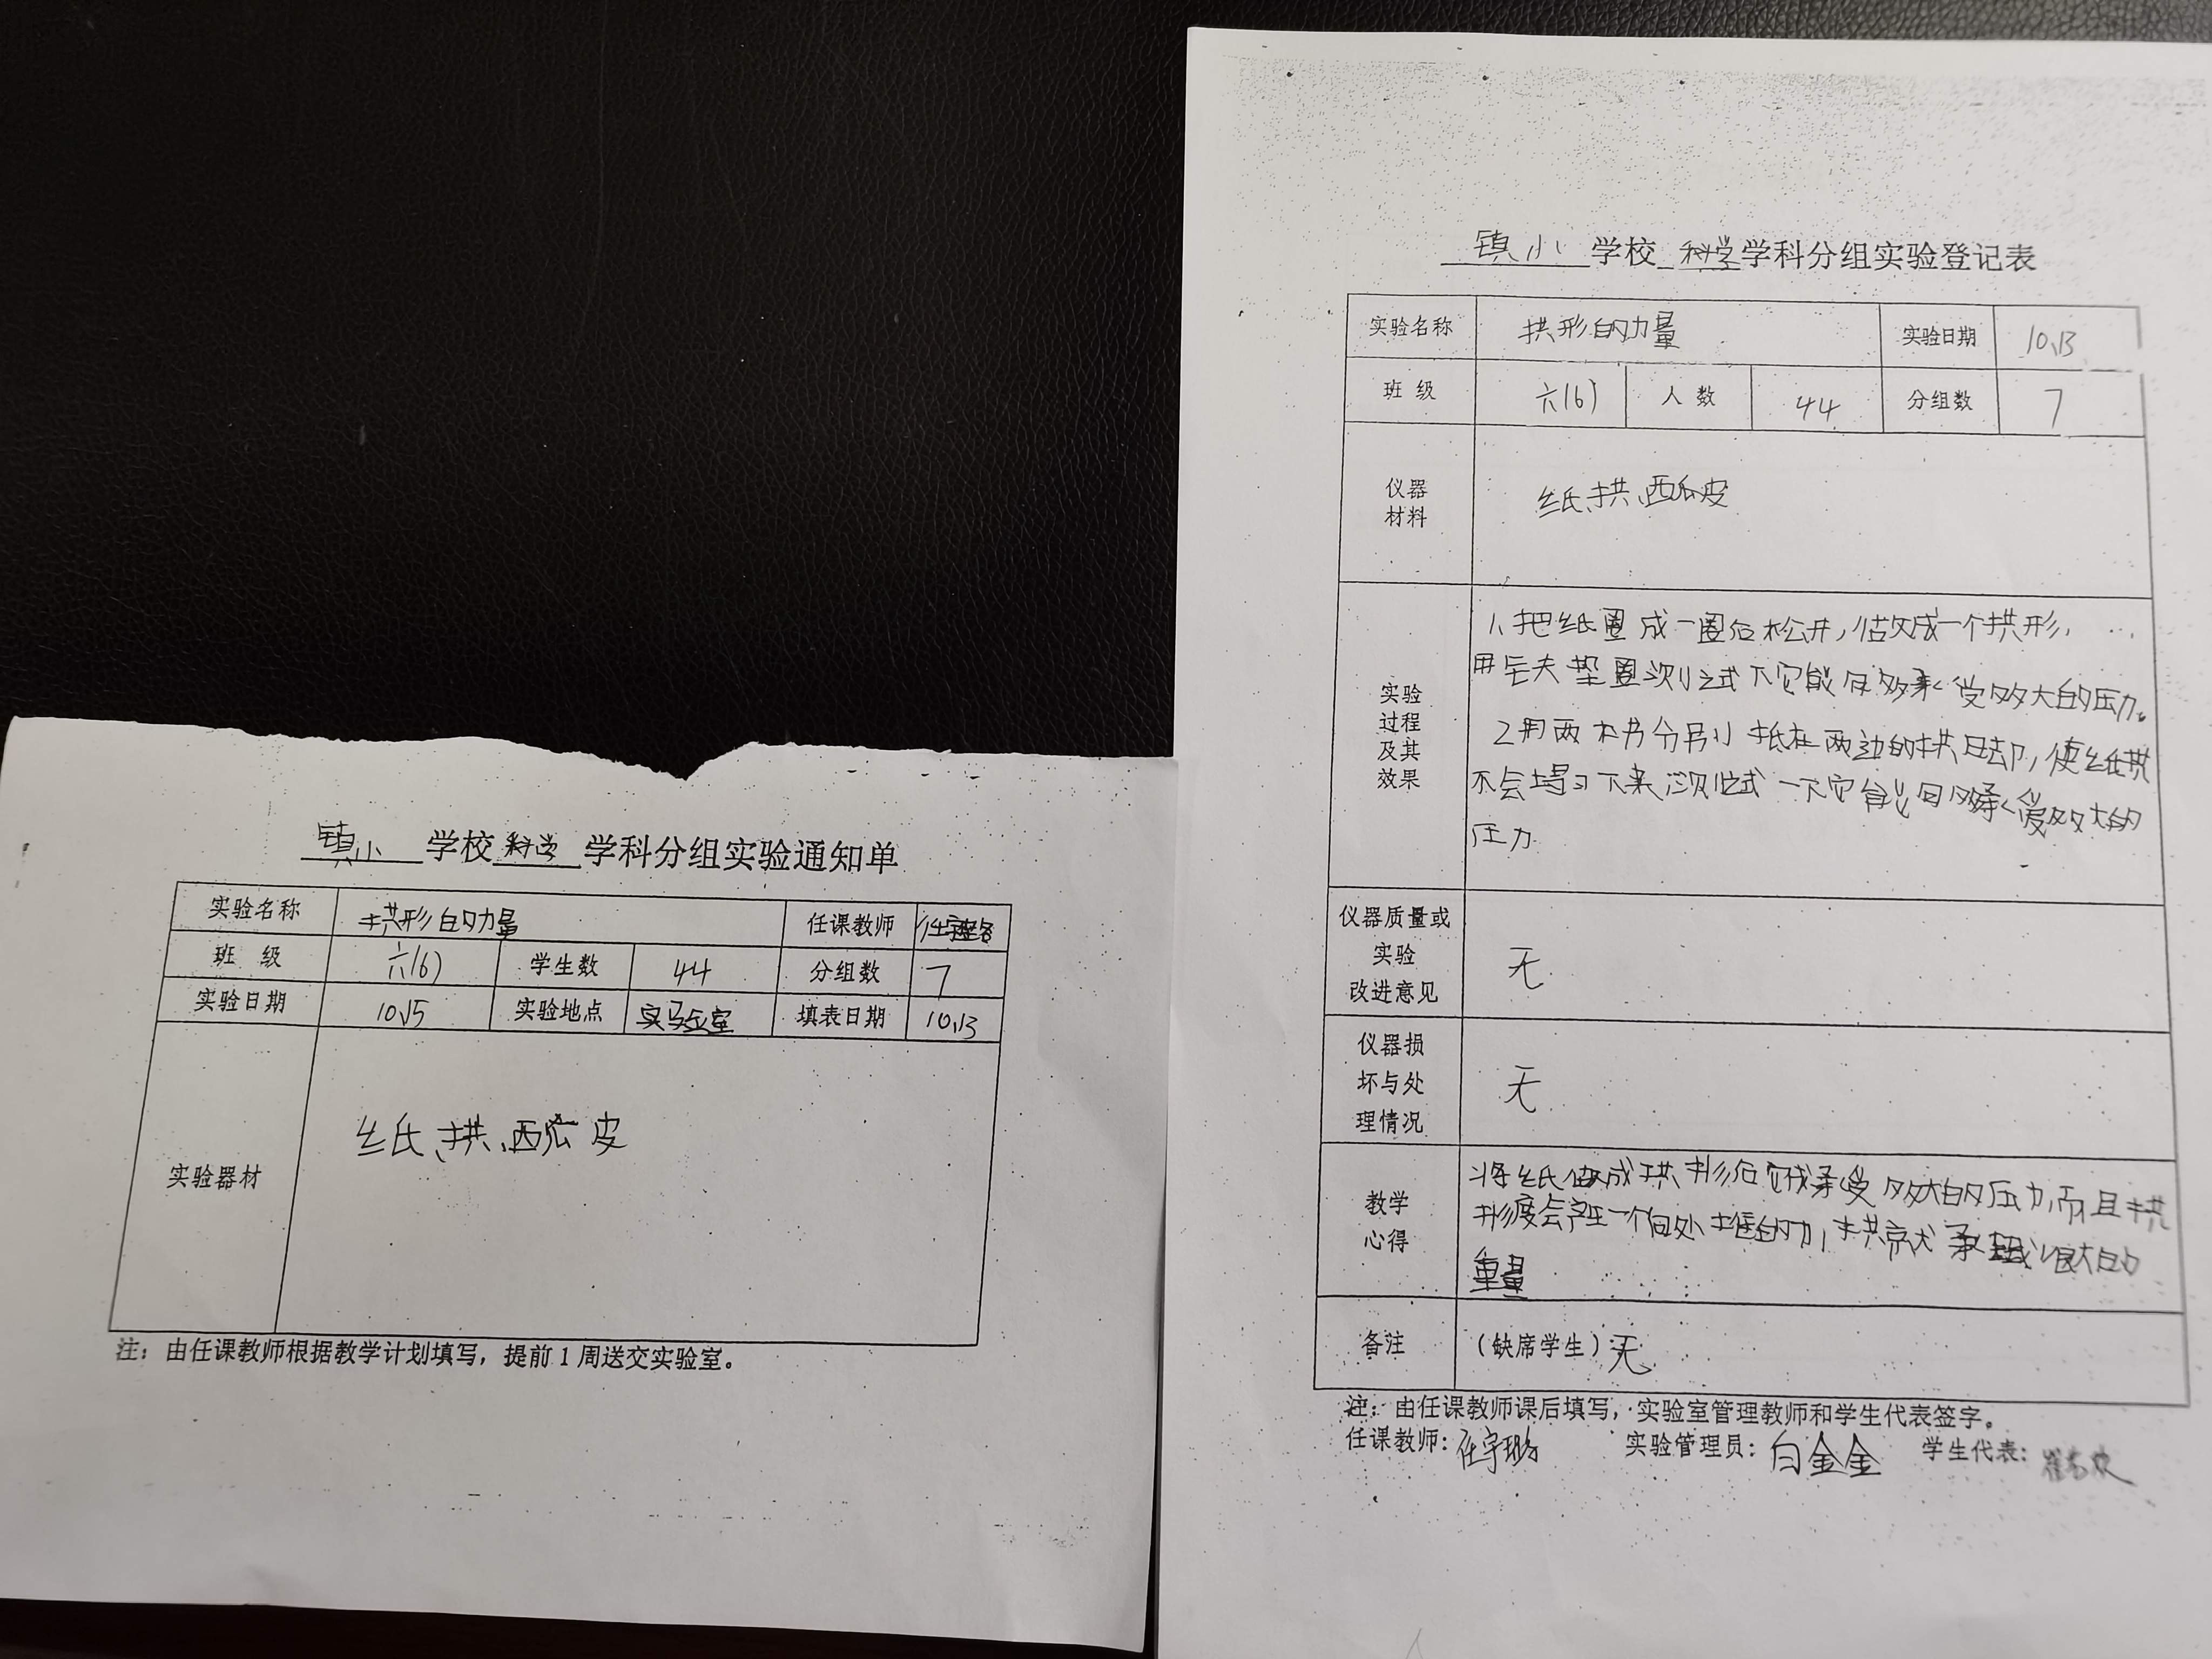 镇小 学校 科学 学科分组实验通知单
实验名称 拱形的力量 任课教师
班 级 六(6) 学生数 44 分组数 7
实验日期 10、15 实验地点 实验室 填表日期 10、13
实验器材 纸、拱、西瓜皮
注：由任课教师根据教学计划填写，提前1周送交实验室。
镇小 学校 科学 学科分组实验登记表
实验名称 拱形的力量 实验日期 10、13
班 级 六(6) 人 数 44 分组数 7
仪器
材料
纸、拱、西瓜皮
实验
过程
及其
效果
1、把纸圈成一圈后松开，做成一个拱形，
用 垫圈测试下它能够承受多大的压力。
2用两本书分别抵在两边的拱脚，使纸拱
不会塌下来测试一下它能够承受多大的
压力
仪器质量或
实验
改进意见
无
仪器损
坏与处
理情况
无
教学
心得
将纸做成拱形后 承受 大的压力，而且拱
形 会产生一个向外推的力，拱 承 很大的
重量
备注 (缺席学生)无
注：由任课教师课后填写，实验室管理教师和学生代表签字。
任课教师: 任宇璐 实验管理员: 白金金 学生代表: